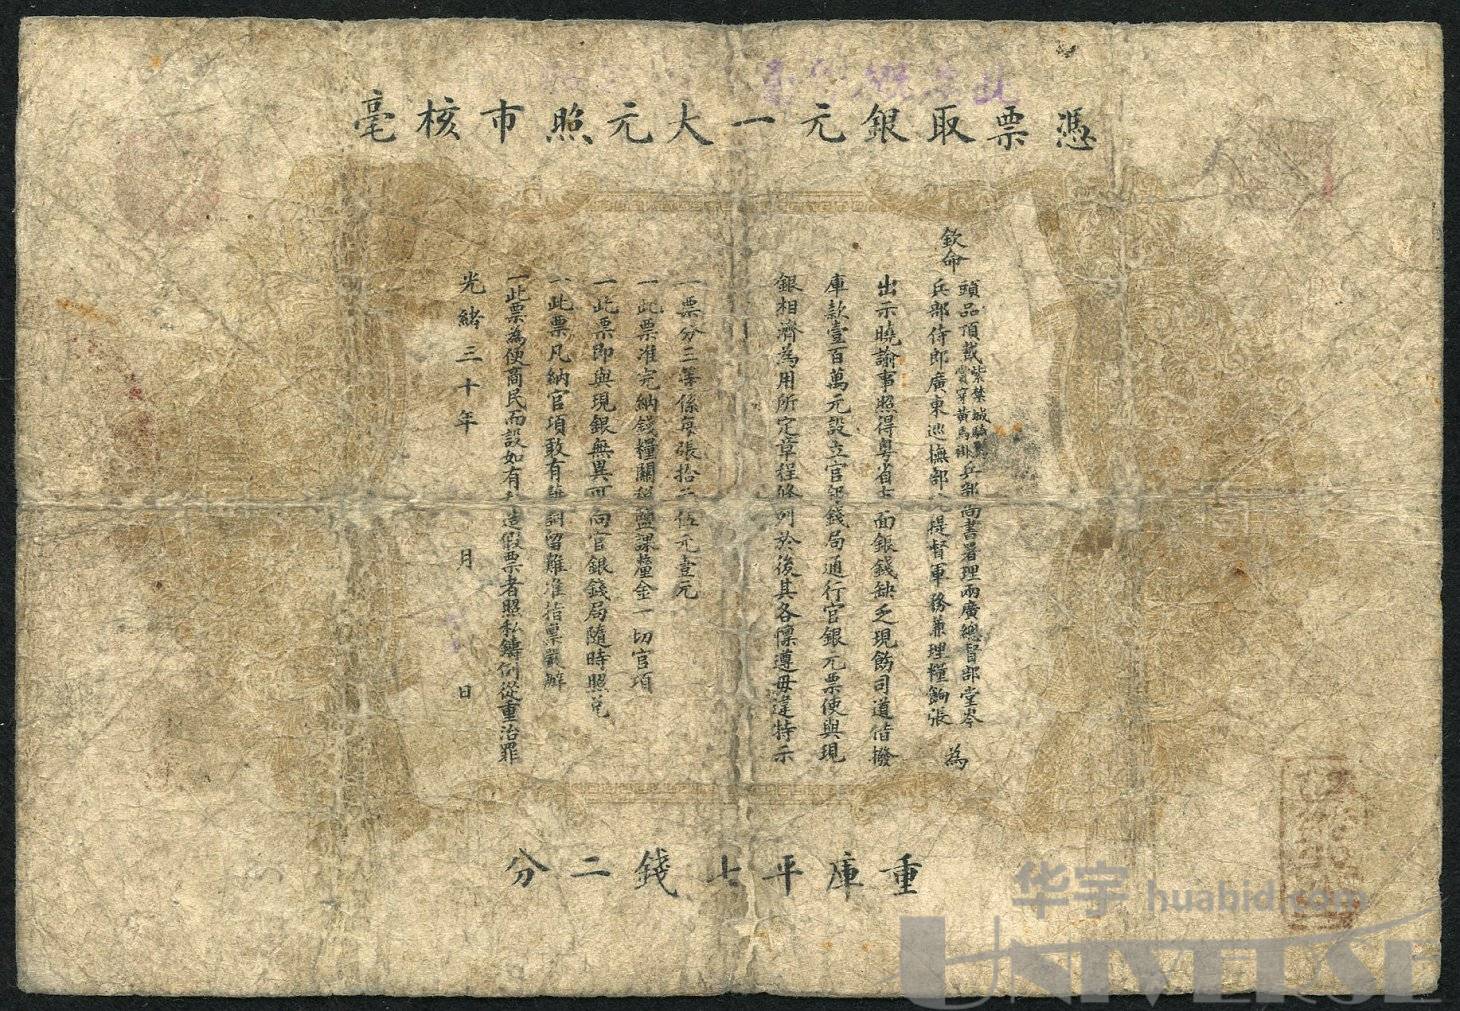 憑票取銀元一大元照市核毫
欽命
頭品頂戴紫禁城騎馬賞穿黃馬褂兵部尚書署理兩廣總督部堂岑
兵部侍郎廣東巡撫部 提督軍務兼理糧餉張
為
出示曉諭事照得粵省 面銀錢缺乏現飭司道借撥
庫款壹百萬元設立官銀錢局通行官銀元票使與現
銀相濟為用所定章程條列於後其各懍遵毋違特示
一票分三等係每張拾元伍元壹元
一此票准完納錢糧關稅鹽課釐金一切官項
一此票即與現銀無異可向官銀錢局隨時照兌
一此票凡納官項敢有 詞留難准指票嚴辦
一此票為便商民而設如有 造假票者照私鑄例從重治罪
光緒三十年 月 日
重庫平七錢二分
华宇 huabid.com
UNIVERSE